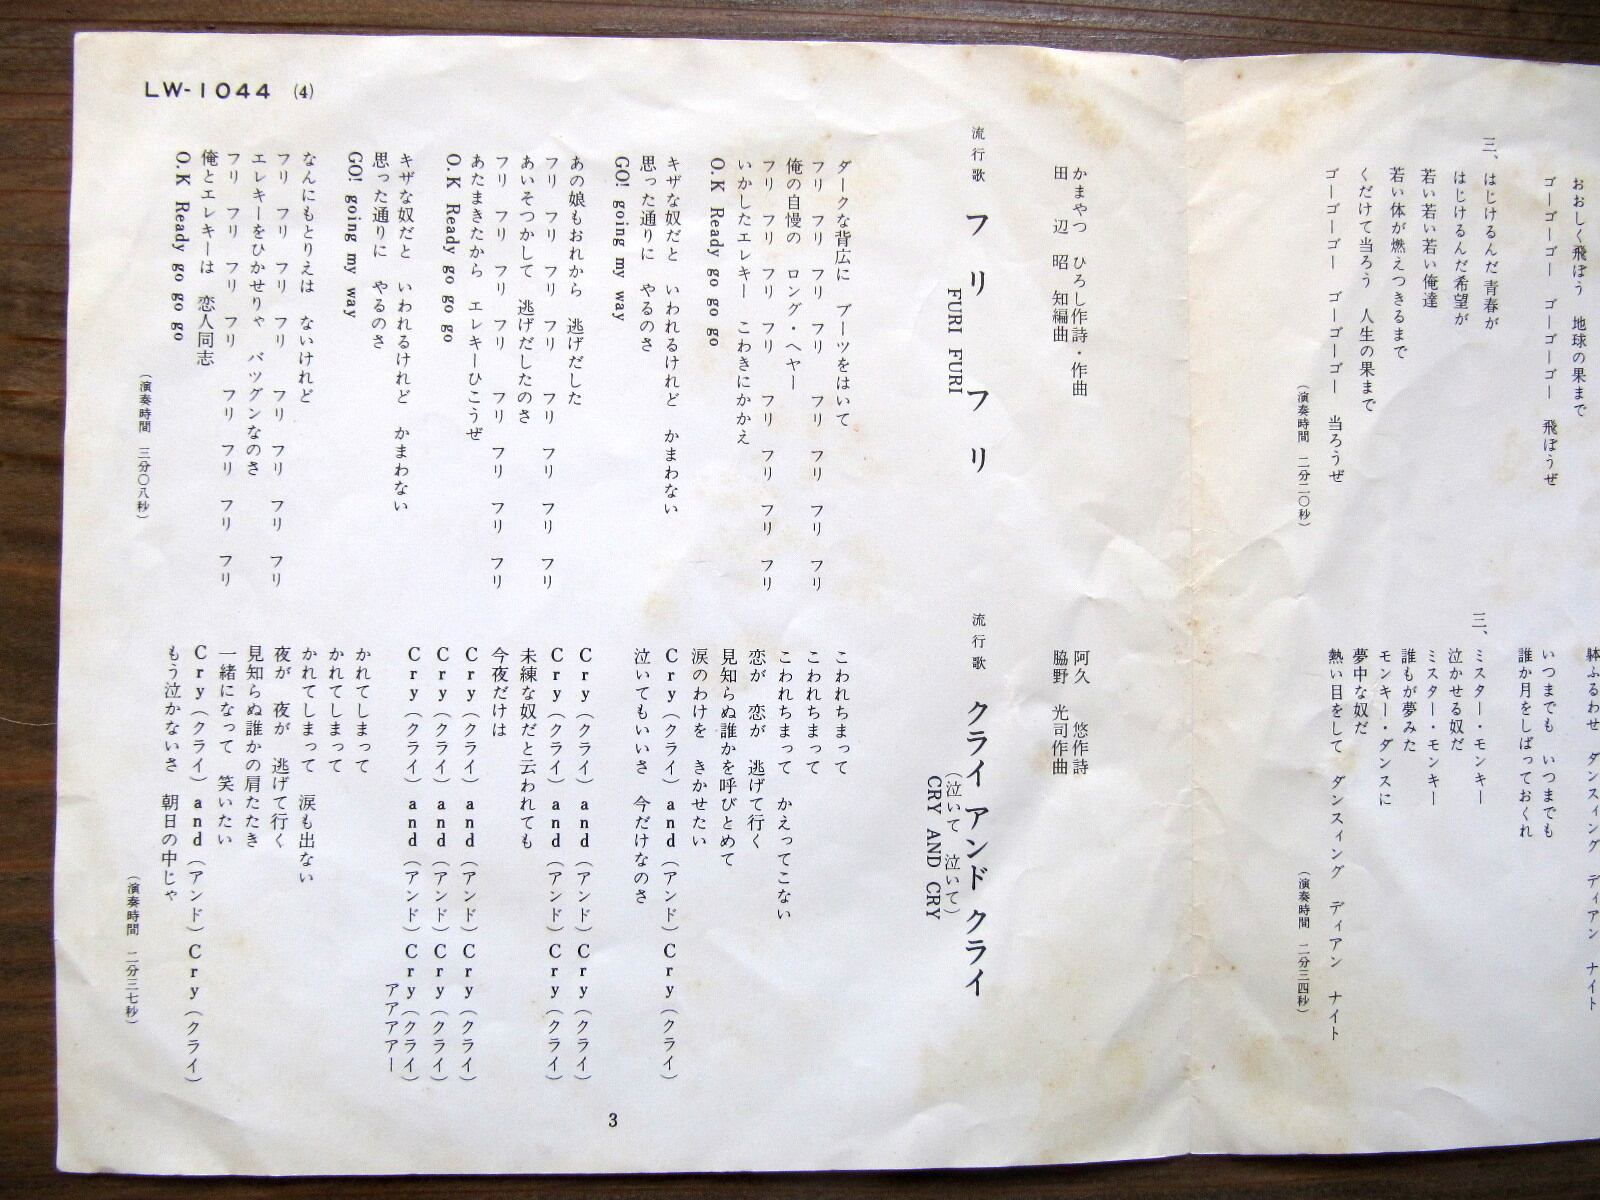 おおしく飛ぼう　地球の果まで
ゴーゴーゴー　ゴーゴーゴー　飛ぼうぜ
三、
はじけるんだ 青春が
はじけるんだ希望が
若い若い若い俺達
若い体が燃えつきるまで
くだけて当ろう　人生の果まで
ゴーゴーゴー　ゴーゴーゴー　当ろうぜ
（演奏時間　二分二〇秒）
躰ふるわせ　ダンスィング　ディアン　ナイト
いつまでも　いつまでも
誰か月をしばっておくれ
三、
ミスター・モンキー
泣かせる奴だ
ミスター・モンキー
誰もが夢みた
モンキー・ダンスに
夢中な奴だ
熱い目をして　ダンスィング　ディアン　ナイト
（演奏時間　二分三四秒）
LW-1044 (4)
かまやつ　ひろし作詩・作曲
田辺昭知編曲
流行歌　フリフリ
FURI FURI
ダークな背広に　ブーツをはいて
フリ　フリ　フリ　フリ　フリ　フリ　フリ　フリ
俺の自慢の　ロング・ヘヤー
フリ　フリ　フリ　フリ　フリ　フリ　フリ　フリ
いかしたエレキー　こわきにかかえ
O.K Ready go go go
キザな奴だと　いわれるけれど　かまわない
思った通りに　やるのさ
GO! going my way
あの娘もおれから　逃げだした
フリ　フリ　フリ　フリ　フリ　フリ　フリ　フリ
あいそつかして　逃げだしたのさ
フリ　フリ　フリ　フリ　フリ　フリ　フリ　フリ
あたまきたから　エレキーひこうぜ
O.K Ready go go go
キザな奴だと　いわれるけれど　かまわない
思った通りに　やるのさ
GO! going my way
なんにもとりえは　ないけれど
フリ　フリ　フリ　フリ　フリ　フリ　フリ　フリ
エレキーをひかせりゃ　バツグンなのさ
フリ　フリ　フリ　フリ　フリ　フリ　フリ　フリ
俺とエレキーは　恋人同志
O.K Ready go go go
（演奏時間　三分〇八秒）
阿久　悠作詩
脇野　光司作曲
流行歌　クライ アンド クライ
（泣いて　泣いて）
CRY AND CRY
こわれちまって
こわれちまって
こわれちまって　かえってこない
恋が　恋が　逃げて行く
見知らぬ誰かを呼びとめて
涙のわけを　きかせたい
Cry（クライ）and（アンド）Cry（クライ）
泣いてもいいさ　今だけなのさ
Cry（クライ）and（アンド）Cry（クライ）
Cry（クライ）and（アンド）Cry（クライ）
未練な奴だと云われても
今夜だけは
Cry（クライ）and（アンド）Cry（クライ）
Cry（クライ）and（アンド）Cry（クライ）
Cry（クライ）and（アンド）Cry（クライ）
アアアアー
かれてしまって
かれてしまって
かれてしまって　涙も出ない
夜が　夜が　逃げて行く
見知らぬ誰かの肩たたき
一緒になって　笑いたい
Cry（クライ）and（アンド）Cry（クライ）
もう泣かないさ　朝日の中じゃ
（演奏時間　二分三七秒）
3